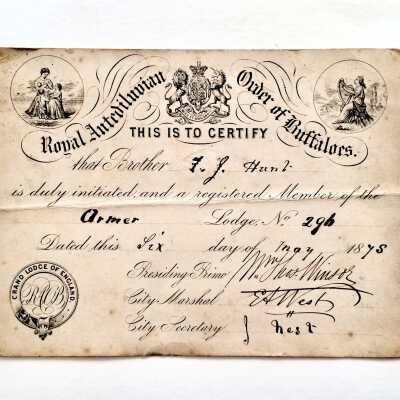 Royal Antediluvian Order of Buffaloes.
THIS IS TO CERTIFY
that Brother F. J. Hunt
is duly initiated, and a registered Member of the
Armer Lodge, No 296
Dated this Six day of May 1875
Presiding Primo Wm
City Marshal E A West
City Secretary } West
GRAND LODGE OF ENGLAND.
RAOB